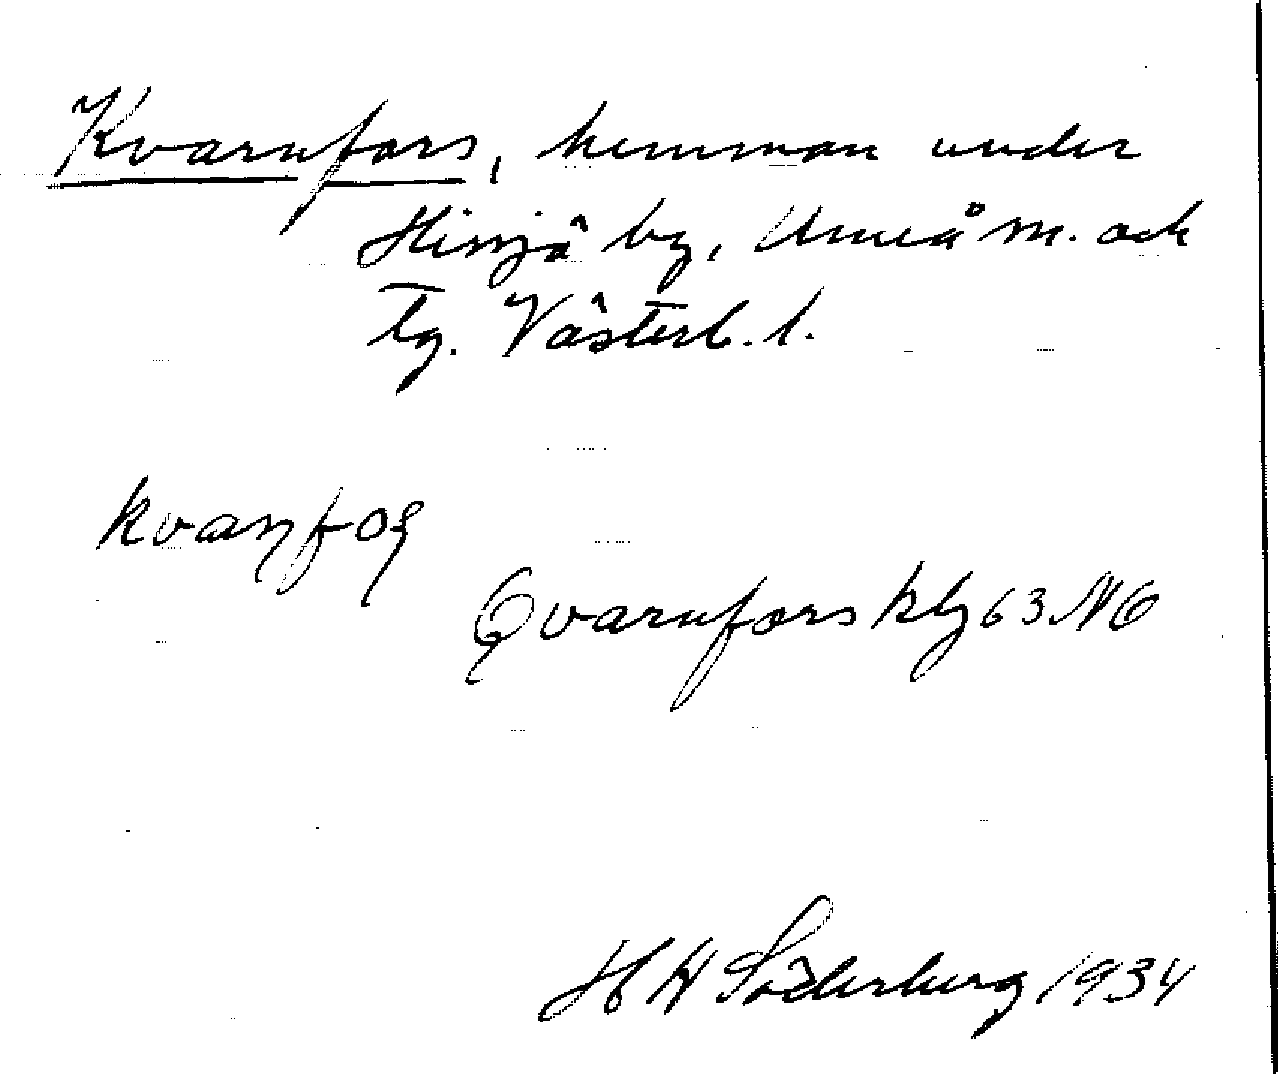 Kvarnfors, hemman under
Hissjö by, Umeå sn. och
tg. Västerb. l.
kvaɳfoʂ
Qvarnfors klg 63 NO
H H Söderberg 1934